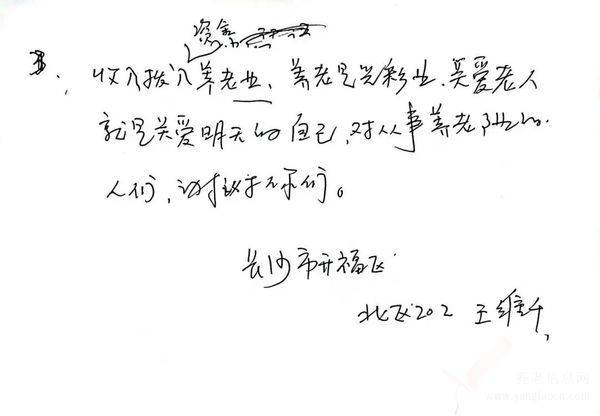 资金
3、收入拨入养老业、养老是光彩业、关爱老人
就是关爱明天的自己,对从事养老业的
人们,
长沙市开福区
北区202 王维
养老信息网
www.yanglaocn.com